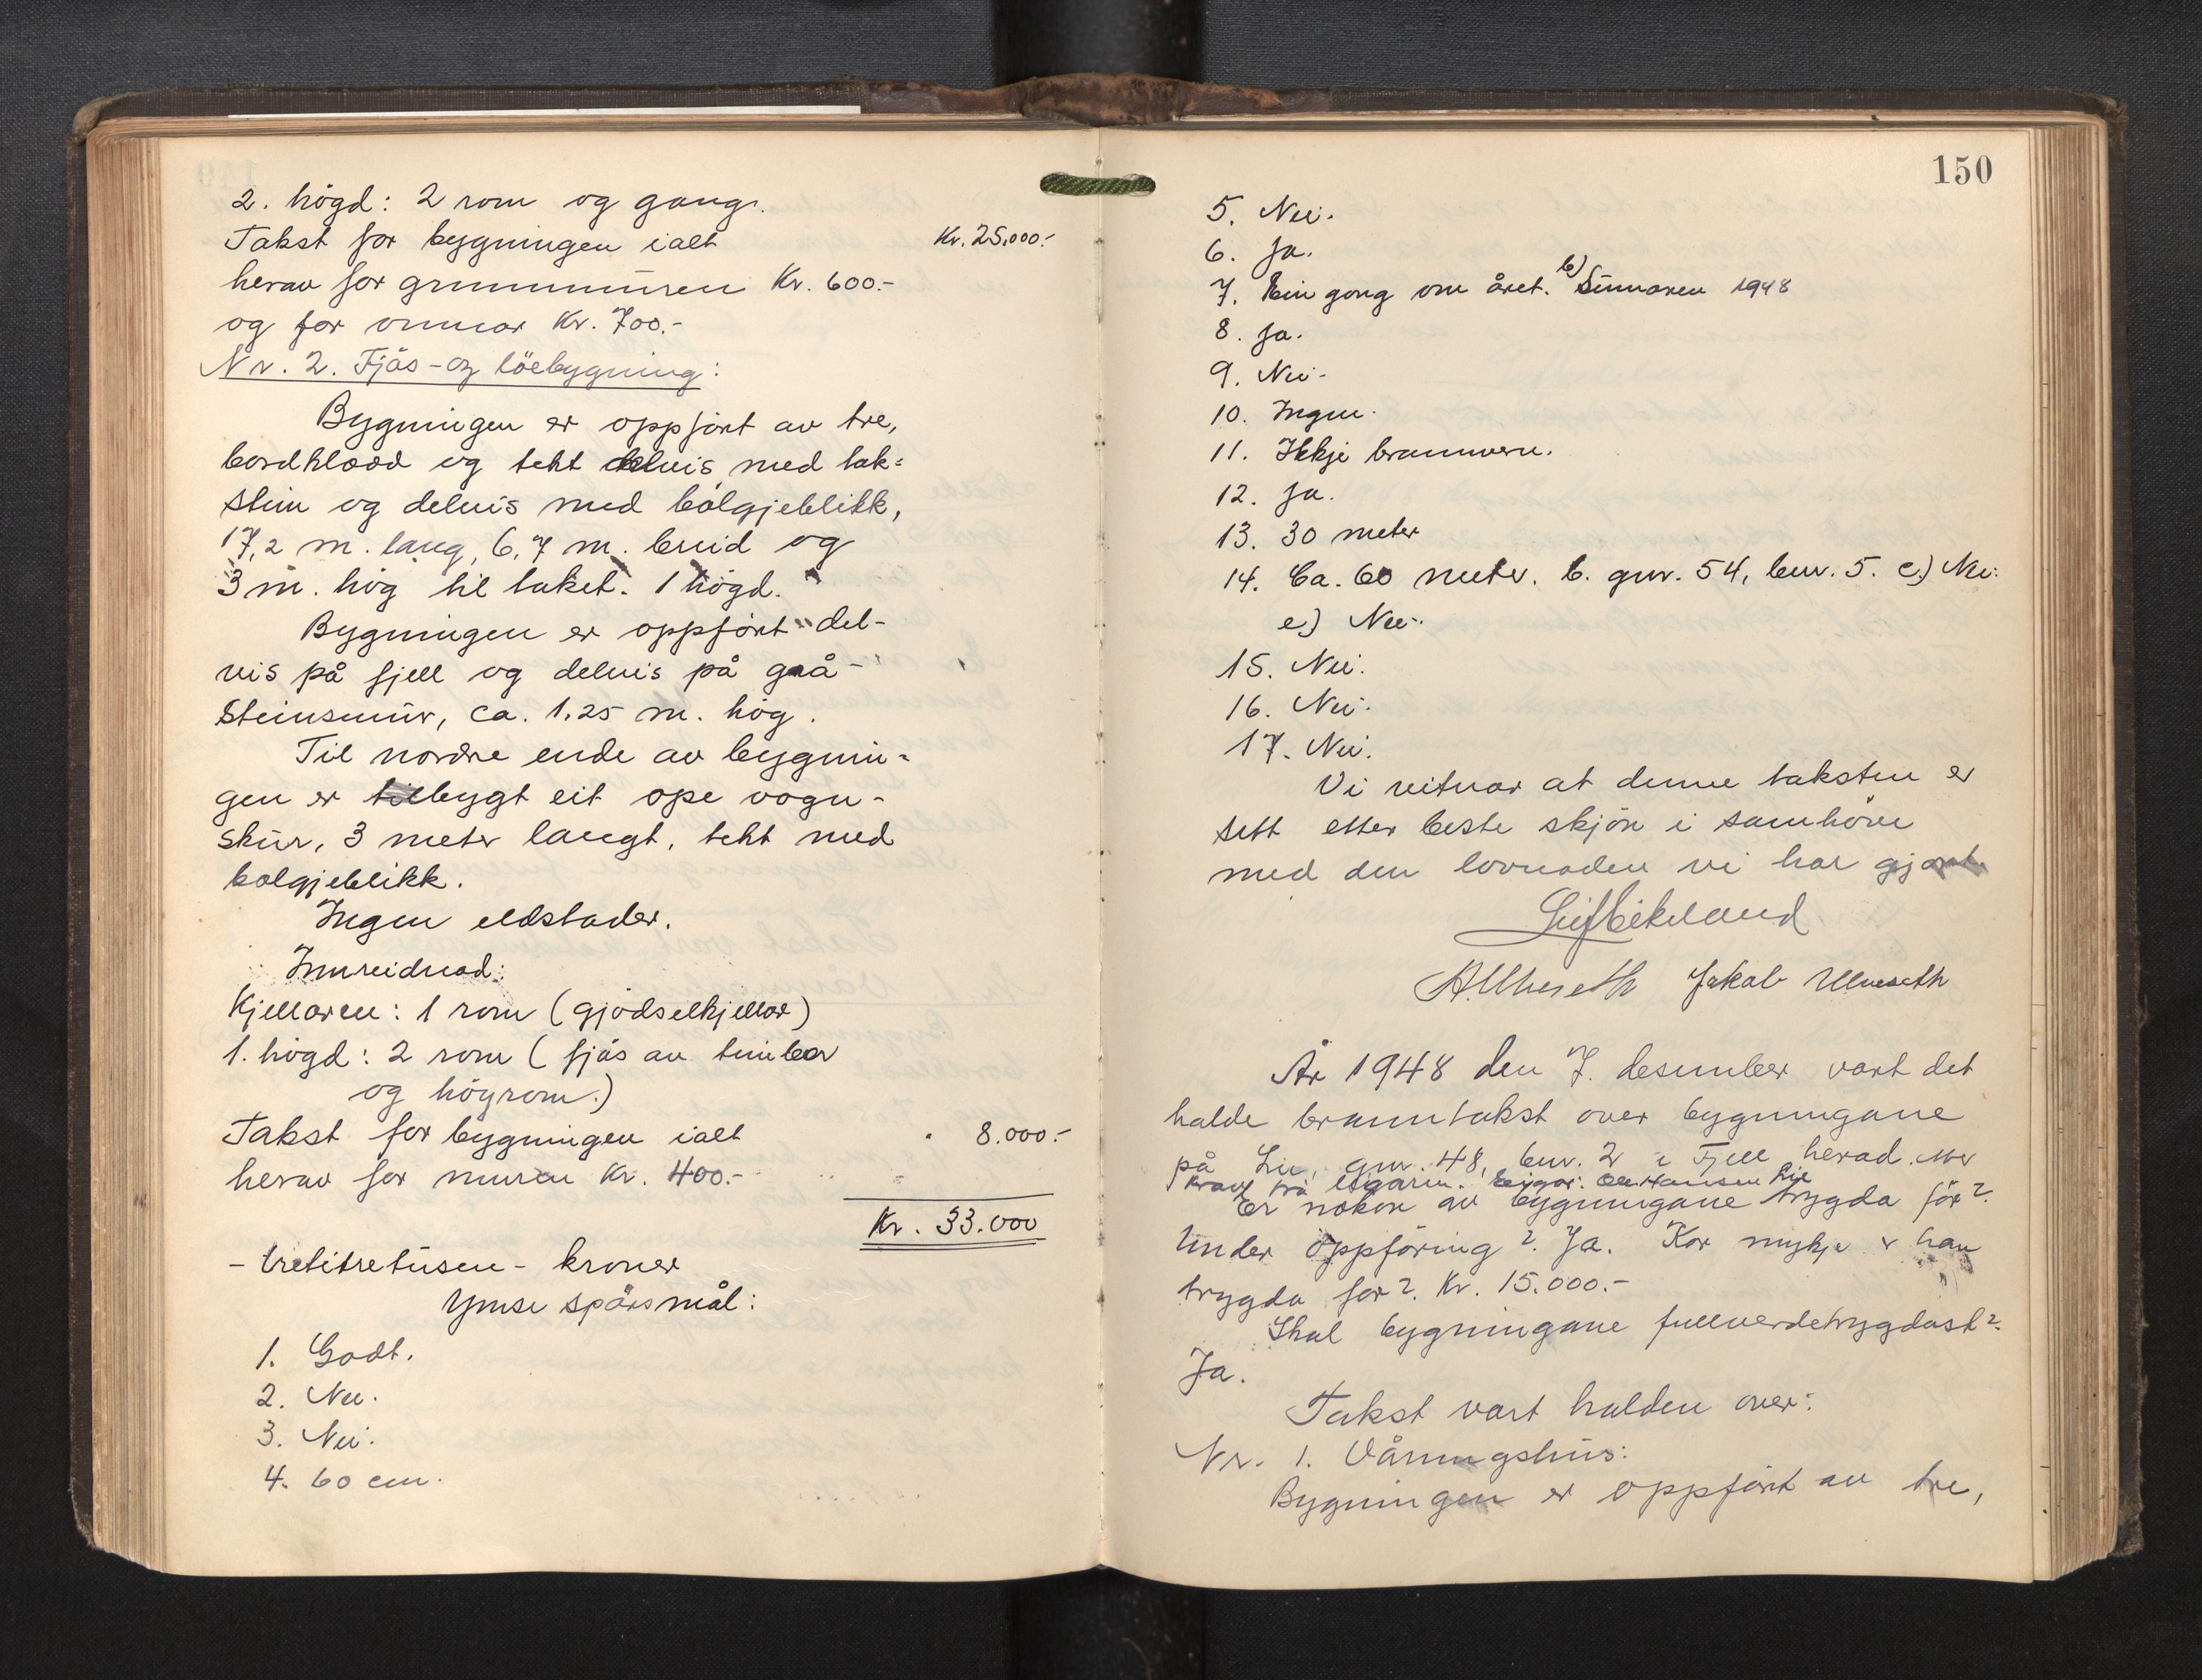 2. högd: 2 rom og gang.
Takst for bygningen ialt Kr. 25.000.-
herav for grunnmuren Kr. 600.-
og for omnar Kr. 700.-
Nr. 2. Fjös- og löebygning:
Bygningen er oppfört av tre,
bordklædd og tekt delvis med tak=
stein og delvis med bölgjeblikk,
17,2 m. lang, 6,7 m. breid og
3 m. hög til taket. 1 högd.
Bygningen er oppfört del-
vis på fjell og delvis på grå-
steinsmur, ca. 1,25 m. hög.
Til nordre ende av bygnin=
gen er tilbygt eit ope vogn-
skur, 3 meter langt, tekt med
bolgjeblikk.
Ingen eldstader.
Innreidnad:
Kjellaren: 1 rom (gjödselkjellar)
1. högd: 2 rom (fjös av timber
og höyrom.)
Takst for bygningen ialt " 8.000.-
herav for muren Kr. 400.-
Kr. 33.000
- trettitretusen - kroner
Ymse spörsmål:
1. Godt.
2. Nei.
3. Nei.
4. 60 cm.
150
5. Nei.
6. Ja.
7. Ein gong om året. b) Sumaren 1948
8. Ja.
9. Nei.
10. Ingen.
11. Ikkje brannvern.
12. Ja.
13. 30 meter
14. Ca. 60 meter. b. gnr. 54, bnr. 5. c.) Nei.
e) Nei.
15. Nei.
16. Nei.
17. Nei.
Vi vitnar at denne taksten er
sett etter beste skjön i samhöve
med den lovnaden vi har gjort.
Leif Eikeland
A. Ulveseth Jakob Ulveseth
År 1948 den 7. desember vart det
halde branntakst over bygningane
på Lie, gnr. 48, bnr. 2 i Fjell herad. etter
krav frå eigaren. Eigar: Ole Hansen Lie
Er nokon av bygningane trygda för?
Under oppföring? Ja. Kor mykje er han
trygda for? Kr. 15.000.-
Skal bygningane fullverdetrygdast?
Ja.
Takst vart halden over:
Nr. 1. Våningshus:
Bygningen er oppfört av tre,